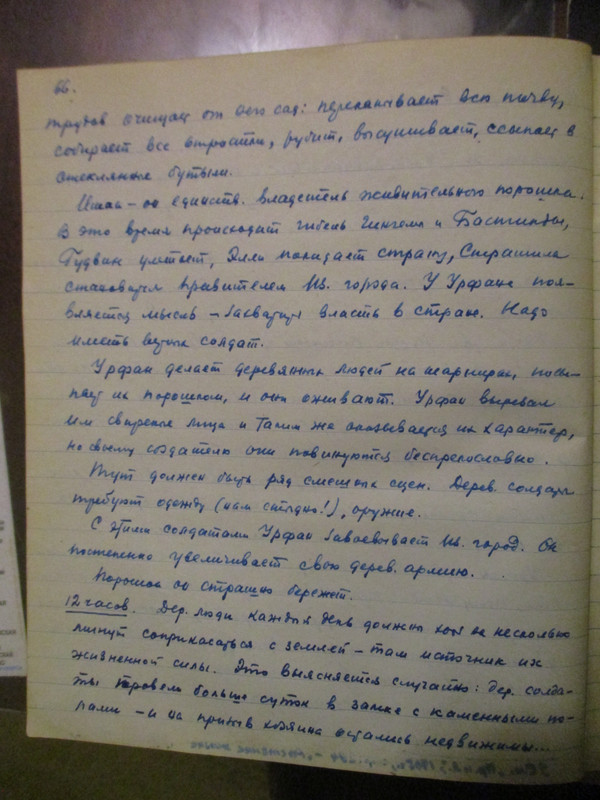 66.
трудов очищает от него сад: перекапывает всю почву,
собирает все отростки, рубит, высушивает, ссыпает в
стеклянные бутыли.
Итак – он единств. владетель живительного порошка.
В это время происходит гибель Гингемы и Бастинды,
Гудвин улетает, Элли покидает страну, Страшила
становится правителем Из. города. У Урфана поя-
вляется мысль – захватить власть в стране. Надо
иметь верных солдат.
Урфан делает деревянных людей на шарнирах, посы-
пает их порошком, и они оживают. Урфан вырезал
им свирепые лица и таким же оказывается их характер,
но своему создателю они повинуются беспрекословно.
Тут должен быть ряд смешных сцен. Дерев. солдаты
требуют одежду (нам стыдно!), оружие.
С этими солдатами Урфан завоевывает Из. город. Он
постепенно увеличивает свою дерев. армию.
Порошок он страшно бережет.
12 часов. Дер. люди каждый день должны хотя на несколько
минут соприкасаться с землей – там источник их
жизненной силы. Это выясняется случайно: дер. солда-
ты провели больше суток в замке с каменными по-
лами – и на призыв хозяина остались недвижимы...